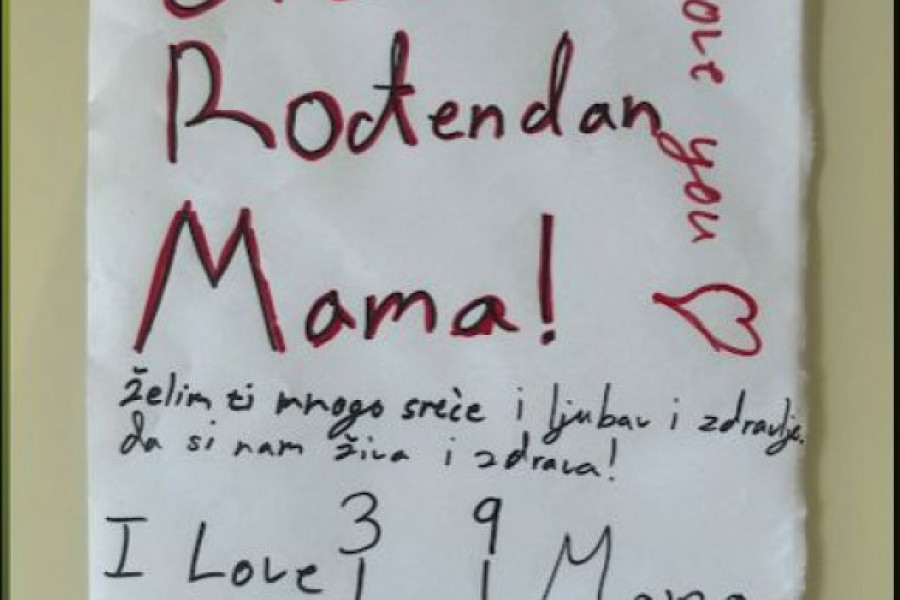 Rođendan
Mama!
želim ti mnogo sreće i ljubav i zdravlje.
da si nam živa i zdrava!
3 9
I Love Mama
you ♡